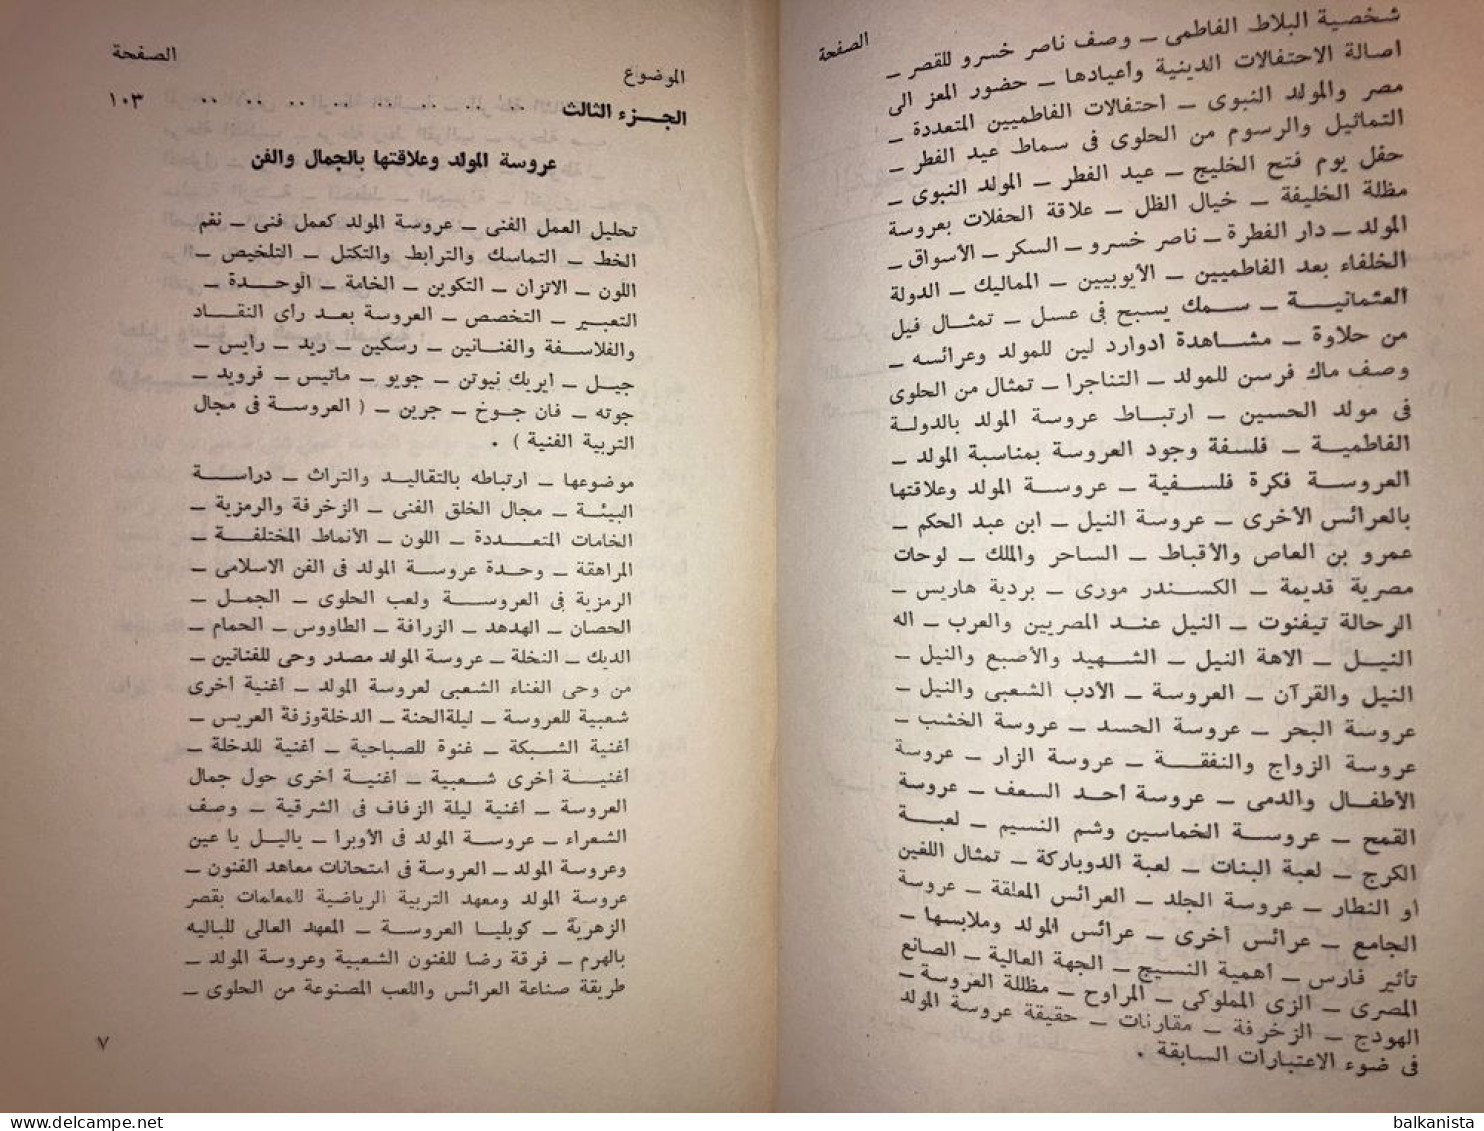 الصفحة
شخصية البلاط الفاطمى ـ وصف ناصر خسرو للقصر ـ
اصالة الاحتفالات الدينية وأعيادها ـ حضور المعز الى
مصر والمولد النبوى ـ احتفالات الفاطميين المتعددة ـ
التماثيل والرسوم من الحلوى فى سماط عيد الفطر ـ
حفل يوم فتح الخليج ـ عيد الفطر ـ المولد النبوى ـ
مظلة الخليفة ـ خيال الظل ـ علاقة الحفلات بعروسة
المولد ـ دار الفطرة ـ ناصر خسرو ـ السكر ـ الأسواق ـ
الخلفاء بعد الفاطميين ـ الأيوبيين ـ المماليك ـ الدولة
العثمانية ـ سمك يسبح فى عسل ـ تمثال فيل
من حلاوة ـ مشاهدة ادوارد لين للمولد وعرائسه ـ
وصف ماك فرسن للمولد ـ التناجرا ـ تمثال من الحلوى
فى مولد الحسين ـ ارتباط عروسة المولد بالدولة
الفاطمية ـ فلسفة وجود العروسة بمناسبة المولد ـ
العروسة فكرة فلسفية ـ عروسة المولد وعلاقتها
بالعرائس الأخرى ـ عروسة النيل ـ ابن عبد الحكم ـ
عمرو بن العاص والأقباط ـ الساحر والملك ـ لوحات
مصرية قديمة ـ الكسندر مورى ـ بردية هاريس ـ
الرحالة تيفنوت ـ النيل عند المصريين والعرب ـ اله
النيل ـ الاهة النيل ـ الشهيد والأصبع والنيل ـ
النيل والقرآن ـ العروسة ـ الأدب الشعبى والنيل ـ
عروسة البحر ـ عروسة الحسد ـ عروسة الخشب ـ
عروسة الزواج والنفقة ـ عروسة الزار ـ عروسة
الأطفال والدمى ـ عروسة أحد السعف ـ عروسة
القمح ـ عروسة الخماسين وشم النسيم ـ لعبة
الكرج ـ لعبة البنات ـ لعبة الدوباركة ـ تمثال اللفين
أو النطار ـ عروسة الجلد ـ العرائس المعلقة ـ عروسة
الجامع ـ عرائس أخرى ـ عرائس المولد وملابسها ـ
تأثير فارس ـ أهمية النسيج ـ الجهة العالية ـ الصانع
المصرى ـ الزى المملوكى ـ المراوح ـ مظللة العروسة ـ
الهودج ـ الزخرفة ـ مقارنات ـ حقيقة عروسة المولد
فى ضوء الاعتبارات السابقة .
الموضوع الصفحة
الجزء الثالث .. .. .. .. .. .. .. .. ١٠٣
عروسة المولد وعلاقتها بالجمال والفن
تحليل العمل الفنى ـ عروسة المولد كعمل فنى ـ نقم
الخط ـ التماسك والترابط والتكتل ـ التلخيص ـ
اللون ـ الاتزان ـ التكوين ـ الخامة ـ الوحدة ـ
التعبير ـ التخصص ـ العروسة بعد رأى النقاد
والفلاسفة والفنانين ـ رسكين ـ ريد ـ رايس ـ
جيل ـ ايريك نيوتن ـ جويو ـ ماتيس ـ فرويد ـ
جوته ـ فان جوخ ـ جرين ـ ( العروسة فى مجال
التربية الفنية ) .
موضوعها ـ ارتباطه بالتقاليد والتراث ـ دراسة
البيئة ـ مجال الخلق الفنى ـ الزخرفة والرمزية ـ
الخامات المتعددة ـ اللون ـ الأنماط المختلفة ـ
المراهقة ـ وحدة عروسة المولد فى الفن الاسلامى ـ
الرمزية فى العروسة ولعب الحلوى ـ الجمل ـ
الحصان ـ الهدهد ـ الزرافة ـ الطاووس ـ الحمام ـ
الديك ـ النخلة ـ عروسة المولد مصدر وحى للفنانين ـ
من وحى الغناء الشعبى لعروسة المولد ـ أغنية أخرى
شعبية للعروسة ـ ليلة الحنة ـ الدخلة وزفة العريس ـ
أغنية الشبكة ـ غنوة للصباحية ـ أغنية للدخلة ـ
أغنية أخرى شعبية ـ أغنية أخرى حول جمال
العروسة ـ أغنية ليلة الزفاف فى الشرقية ـ وصف
الشعراء ـ عروسة المولد فى الأوبرا ـ ياليل يا عين
وعروسة المولد ـ العروسة فى امتحانات معاهد الفنون ـ
عروسة المولد ومعهد التربية الرياضية للمعلمات بقصر
الزهرية ـ كوبليا العروسة ـ المعهد العالى للباليه
بالهرم ـ فرقة رضا للفنون الشعبية وعروسة المولد ـ
طريقة صناعة العرائس واللعب المصنوعة من الحلوى ـ
٧
balkanista